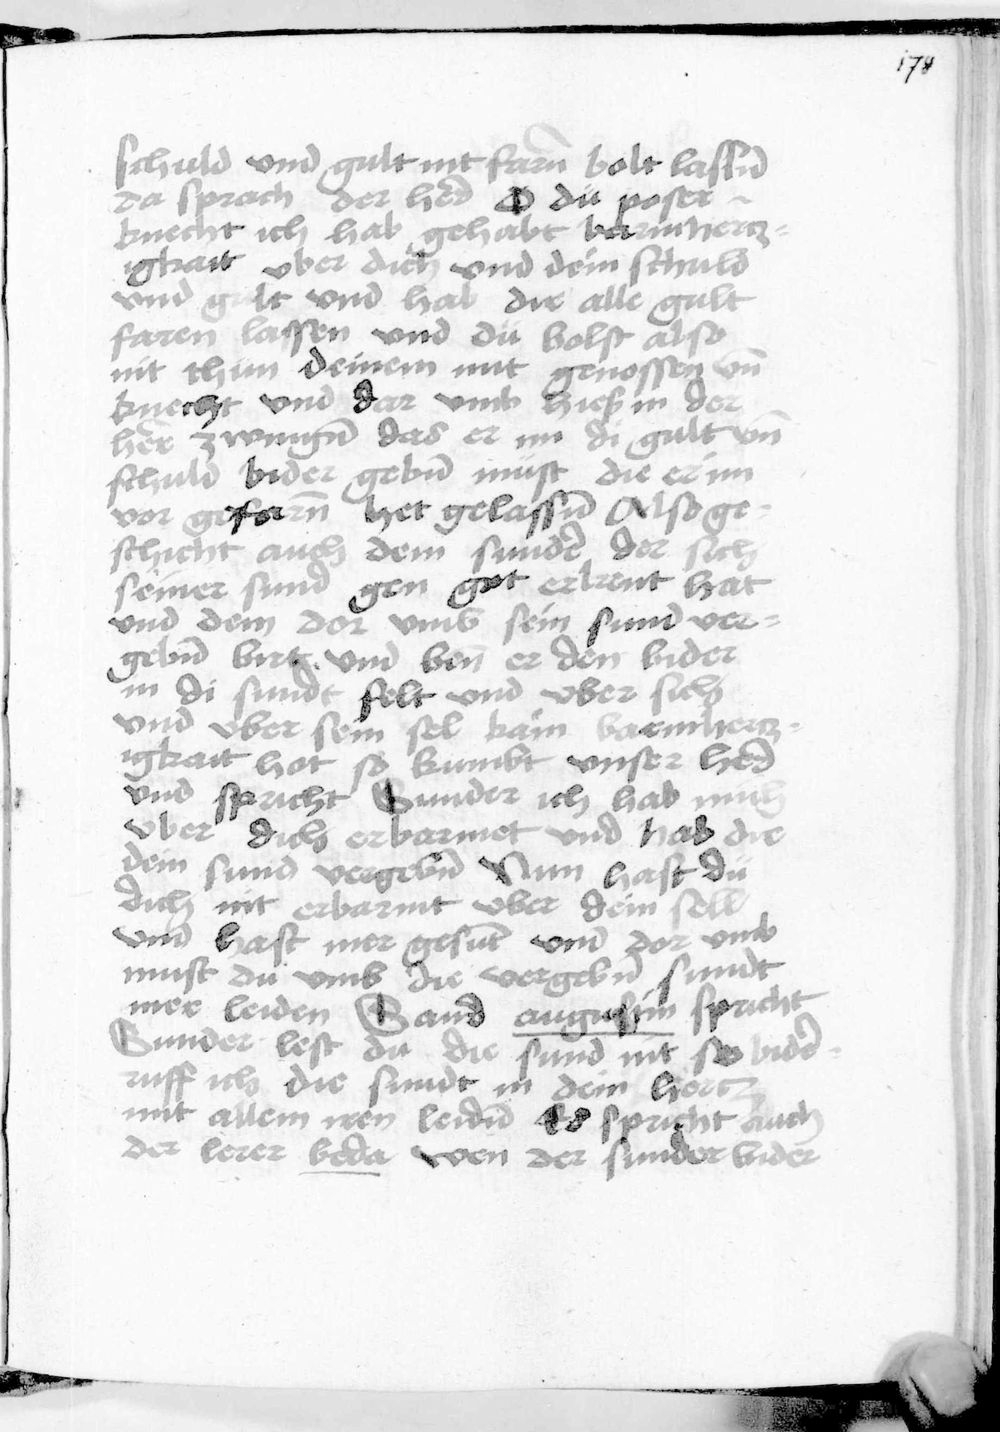 178
schuld vnd gult nit farn̄ bolt lassn̄
da sprach der her̄ O du poser
knecht ich hab gehabt barmhertz=
igkait vber dich vnd dein schuld
vnd gult vnd hab die alle gult
faren lassen vnd dü bolst also
nit thun deinem mit genossen vn̄
knecht vnd dar vmb hieß in der
her zwingn̄ das er im di gult vn̄
schuld bider gebn̄ müst die er im
vor gefarn̄ het gelassn̄ Also ge-
schicht auch dem sunder̄ der sich
seiner sund gen got erkent hat
vnd dem dor vmb sein sund ver=
gebn̄ birt vnd ben̄ er den bider
in di sundt felt vnd vber sich
vnd vber sein sel kain barmhertz=
igkait hot so kumbt vnser her̄
vnd spricht Sunder ich hab mich
vber dich erbarmet vnd hab die
dein sund vergebn̄ Nun hast dü
dich nit erbarmt vber dein sell
vnd hast mer gesut̄ vnd dor vmb
must du vmb die vergebn̄ sundt
mer leiden Sand augustin spricht
Sunder lest du die sund nit so bider̄=
ruff ich die sundt in dein hertz
mit allem iren leidn̄ Es spricht auch
der lerer beda wen der sunder bider